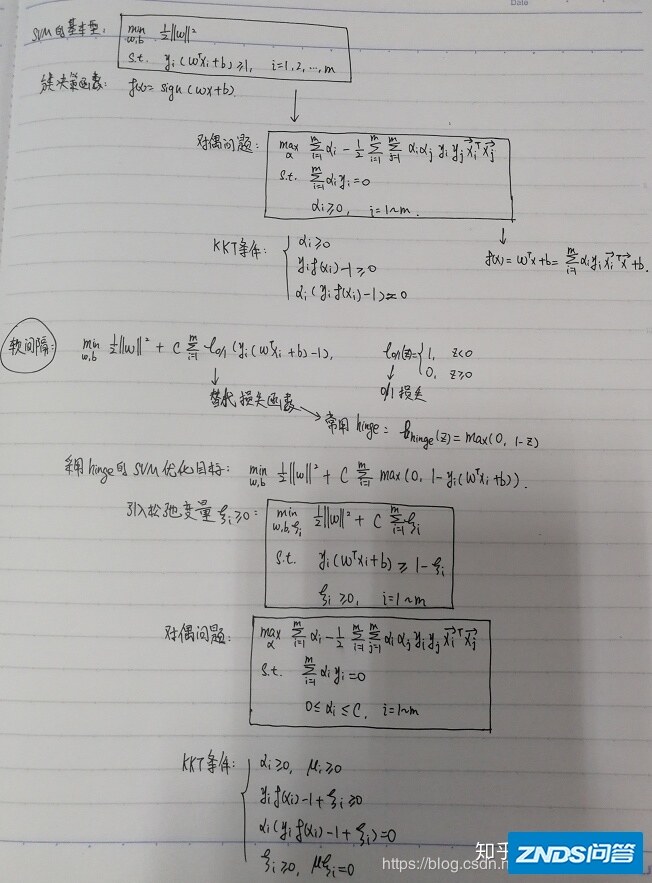 Date
SVM的基本型: min w,b ½||w||²
s.t. yᵢ(wᵀxᵢ+b)≥1, i=1,2,…,m
决策函数: f(x)=sign(wx+b)
对偶问题: max α Σᵢ₌₁ᵐ αᵢ - ½ Σᵢ₌₁ᵐ Σⱼ₌₁ᵐ αᵢαⱼ yᵢyⱼ x⃗ᵢᵀx⃗ⱼ
s.t. Σᵢ₌₁ᵐ αᵢyᵢ=0
αᵢ≥0, i=1~m.
KKT条件: { αᵢ≥0
yᵢf(xᵢ)-1≥0
αᵢ(yᵢf(xᵢ)-1)=0
f(x)=wᵀx+b=Σᵢ₌₁ᵐ αᵢyᵢx⃗ᵢᵀx⃗+b.
软间隔: min w,b ½||w||² + C Σᵢ₌₁ᵐ l₀/₁(yᵢ(wᵀxᵢ+b)-1),
l₀/₁(z)={ 1, z<0
0, z≥0
0/1损失
替代损失函数
常用hinge: l hinge(z)=max(0, 1-z)
采用hinge的SVM优化目标: min w,b ½||w||² + C Σᵢ₌₁ᵐ max(0, 1-yᵢ(wᵀxᵢ+b)).
引入松弛变量ξᵢ≥0: min w,b,ξᵢ ½||w||² + C Σᵢ₌₁ᵐ ξᵢ
s.t. yᵢ(wᵀxᵢ+b)≥1-ξᵢ
ξᵢ≥0, i=1~m
对偶问题: max α Σᵢ₌₁ᵐ αᵢ - ½ Σᵢ₌₁ᵐ Σⱼ₌₁ᵐ αᵢαⱼyᵢyⱼ x⃗ᵢᵀx⃗ⱼ
s.t. Σᵢ₌₁ᵐ αᵢyᵢ=0
0≤αᵢ≤C, i=1~m
KKT条件: { αᵢ≥0, μᵢ≥0
yᵢf(xᵢ)-1+ξᵢ≥0
αᵢ(yᵢf(xᵢ)-1+ξᵢ)=0
ξᵢ≥0, μξᵢ=0
知乎
https://blog.csdn.n
ZNDS问答